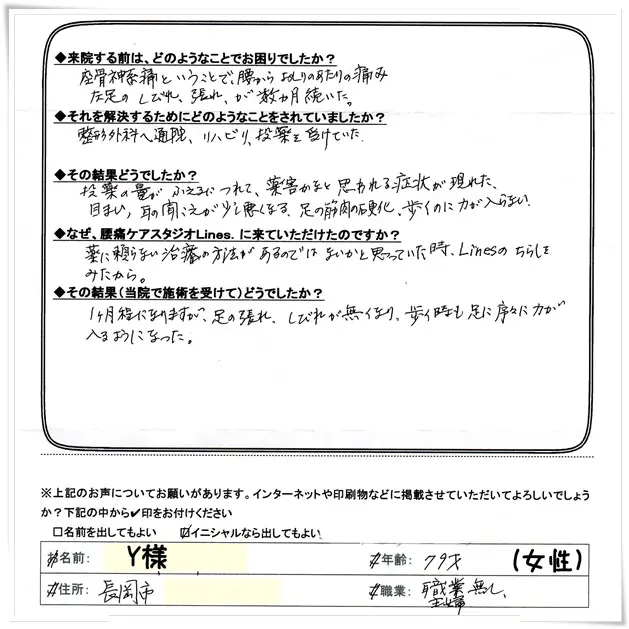 ◆来院する前は、どのようなことでお困りでしたか？
座骨神系痛ということで、腰から おしりのあたりの痛み
左足の しびれ、張れ、が数カ月続いた。
◆それを解決するためにどのようなことをされていましたか？
整形外科へ通院、リハビリ、投薬を受けていた
◆その結果どうでしたか？
投薬の量が ふえるにつれて、薬害かなと思われる症状が現れた、
目まい、耳の聞こえが少し悪くなる、足の筋肉の硬化、歩くのに力が入らない
◆なぜ、腰痛ケアスタジオLines. に来ていただけたのですか？
薬に頼らない治療の方法があるのではないかと思っていた時、Linesの ちらしを
みたから。
◆その結果（当院で施術を受けて）どうでしたか？
1ヶ月程になりますが、足の張れ、しびれが無くなり、歩く時も足に序々に力が
入るようになった。
※上記のお声についてお願いがあります。インターネットや印刷物などに掲載させていただいてよろしいでしょう
か？下記の中から✔印をお付けください
□名前を出してもよい ☑イニシャルなら出してもよい
お名前： Y様 ご年齢： 79才 （女性）
ご住所： 長岡市 ご職業： 職業無し、
主婦